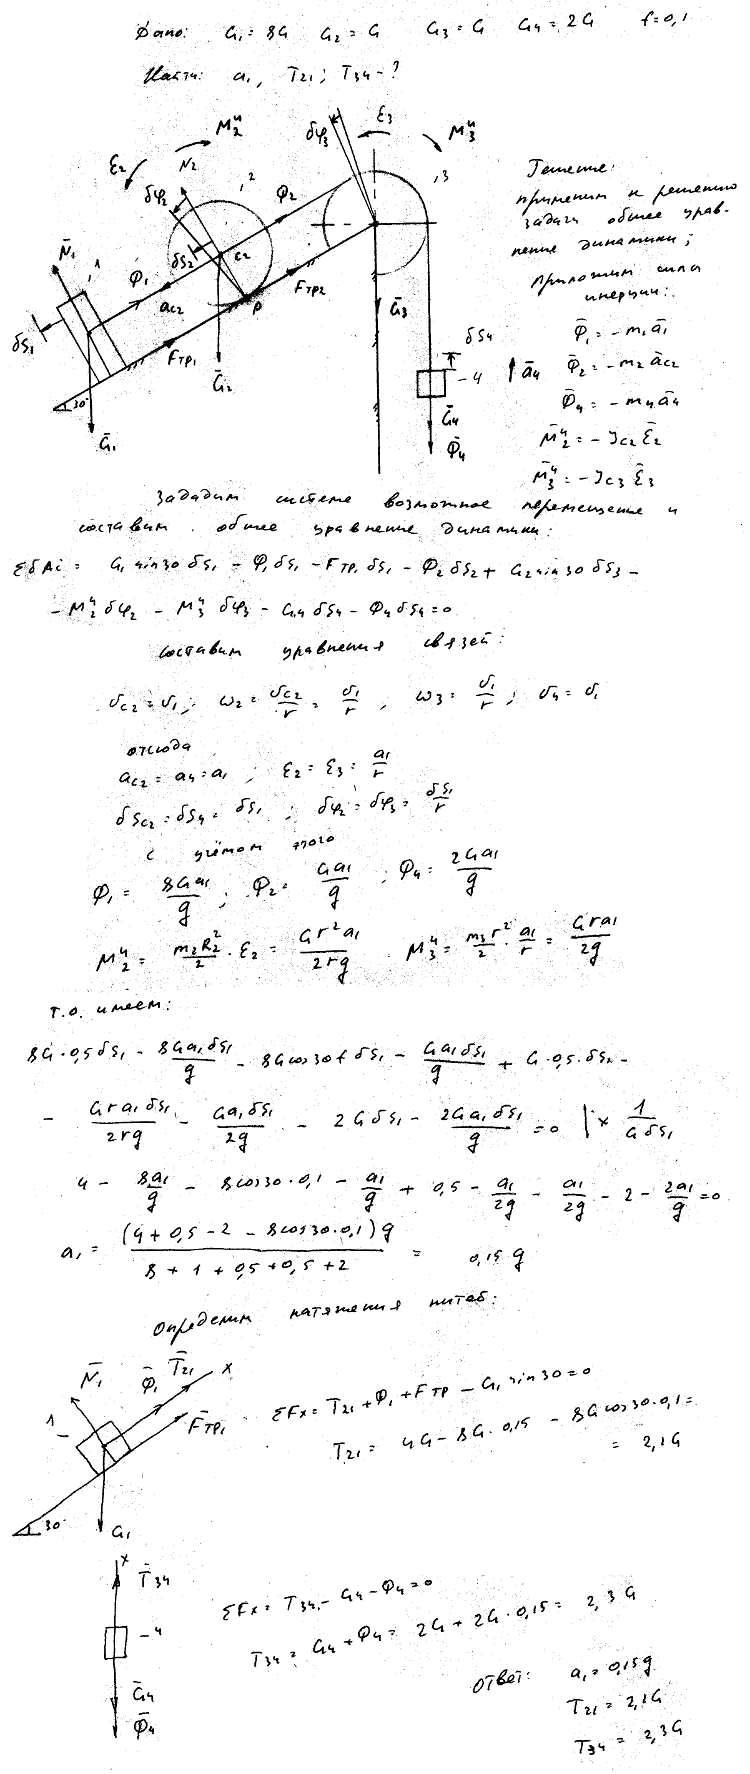 Дано: G₁ = 8G G₂ = G G₃ = G G₄ = 2G f = 0,1
Найти: a₁, T₂₁; T₃₄ - ?
δφ₃ ε₃ M₃ᵘ
M₂ᵘ
ε₂ N₂ δφ₂ 2 Φ₂ 3
N̄₁ 1 Φ₁ δS₂ c₂
δS₁ a_c₂ P Fтр₂ Ḡ₃
Fтр₁ δS₄
30° Ḡ₂ - 4 ā₄
Ḡ₁ Ḡ₄
Φ̄₄
Решение:
применим к решению
задачи общее урав-
нение динамики;
приложим силы
инерции:
Φ̄₁ = -m₁ā₁
Φ̄₂ = -m₂ā_c₂
Φ̄₄ = -m₄ā₄
M̄₂ᵘ = -J_c₂ ε̄₂
M̄₃ᵘ = -J_c₃ ε̄₃
Зададим системе возможное перемещение и
составим общее уравнение динамики:
ΣδAi = G₁ sin30 δS₁ - Φ₁δS₁ - Fтр₁ δS₁ - Φ₂δS₂ + G₂ sin30 δS₃ -
- M₂ᵘ δφ₂ - M₃ᵘ δφ₃ - G₄ δS₄ - Φ₄ δS₄ = 0
составим уравнения связей:
υ_c₂ = υ₁; ω₂ = υ_c₂/r = υ₁/r, ω₃ = υ₁/r; υ₄ = υ₁
отсюда
a_c₂ = a₄ = a₁; ε₂ = ε₃ = a₁/r
δS_c₂ = δS₄ = δS₁; δφ₂ = δφ₃ = δS₁/r
с учётом этого
Φ₁ = 8Ga₁/g; Φ₂ = Ga₁/g; Φ₄ = 2Ga₁/g
M₂ᵘ = m₂R₂²/2 · ε₂ = Gr²a₁/2rg M₃ᵘ = m₃r²/2 · a₁/r = Gra₁/2g
т.о. имеем:
8G·0,5δS₁ - 8Ga₁δS₁/g - 8Gcos30fδS₁ - Ga₁δS₁/g + G·0,5·δS₁ -
- Gra₁δS₁/2rg - Ga₁δS₁/2g - 2GδS₁ - 2Ga₁δS₁/g = 0 | × 1/GδS₁
4 - 8a₁/g - 8cos30·0,1 - a₁/g + 0,5 - a₁/2g - a₁/2g - 2 - 2a₁/g = 0
a₁ = (4 + 0,5 - 2 - 8cos30·0,1)g / 8 + 1 + 0,5 + 0,5 + 2 = 0,15 g
Определим натяжения нитей:
N̄₁ Φ̄₁ T̄₂₁ x
1 F̄тр₁
30° G₁
ΣFx = T₂₁ + Φ₁ + Fтр - G₁ sin30 = 0
T₂₁ = 4G - 8G·0,15 - 8Gcos30·0,1 =
= 2,1G
x
T̄₃₄
- 4
Ḡ₄
Φ̄₄
ΣFx = T₃₄ - G₄ - Φ₄ = 0
T₃₄ = G₄ + Φ₄ = 2G + 2G·0,15 = 2,3G
Ответ: a₁ = 0,15g
T₂₁ = 2,1G
T₃₄ = 2,3G